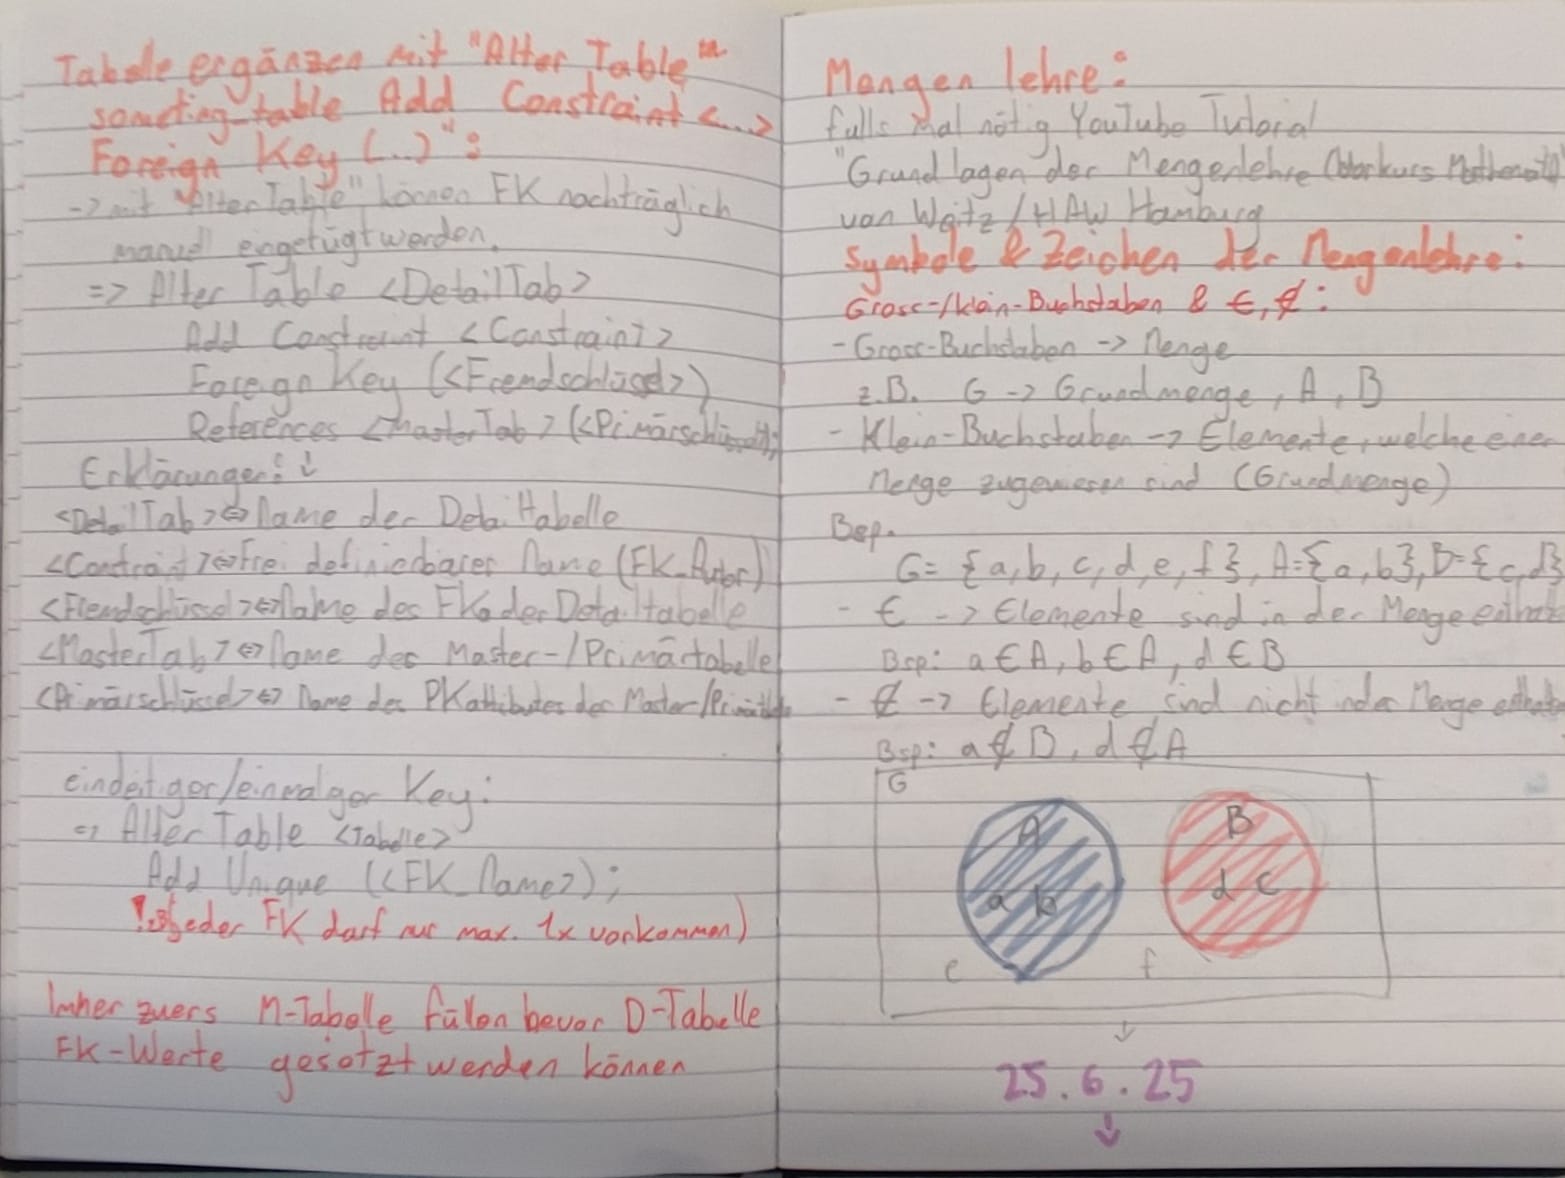 Tabelle ergänzen mit "Alter Table
someting_table Add Constraint <...>
Foreign Key (...)":
-> mit "Alter Table" können FK nachträglich
manuel eingefügt werden.
=> Alter Table <DetailTab>
Add Constraint <Constraint>
Foreign Key (<Fremdschlüssel>)
References <MasterTab> (<Primärschlüssel>);
Erklärungen: ↓
<DetailTab> <=> Name der Detailtabelle
<Constraint> <=> Frei definierbarer Name (FK_Autor)
<Fremdschlüssel> <=> Name des FKs der Detailtabelle
<MasterTab> <=> Name der Master-/Primärtabelle
<Primärschlüssel> <=> Name des PKattributes der Master-/
eindeitiger/einmalger Key:
=> Alter Table <Tabelle>
Add Unique (<FK_Name>);
jeder FK darf nur max. 1x vorkommen)
Imher zuers M-Tabelle fülen bevor D-Tabelle
FK-Werte gesetzt werden können
Mengen lehre:
falls mal nötig YouTube Tutorial
"Grundlagen der Mengenlehre (Vorkurs Mathematik)
von Weitz / HAW Hamburg
Symbole & Zeichen der Mengenlehre:
Gross-/klein-Buchstaben & ∈, ∉:
- Gross-Buchstaben -> Menge
z.B. G -> Grundmenge, A, B
- Klein-Buchstaben -> Elemente, welche einer
Menge zugewiesen sind (Grundmenge)
Bsp.
G= {a, b, c, d, e, f}, A={a, b}, B={c, d}
- ∈ -> Elemente sind in der Menge enthal
Bsp: a∈A, b∈A, d∈B
- ∉ -> Elemente sind nicht in der Menge enthal
Bsp: a∉B, d∉A
G
A B
a b d c
e f
↓
25.6.25
↓